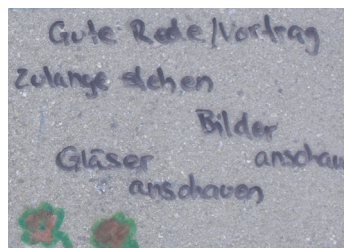 Gute Rede/Vortrag
zulange stehen
Bilder
anschau
Gläser
anschauen